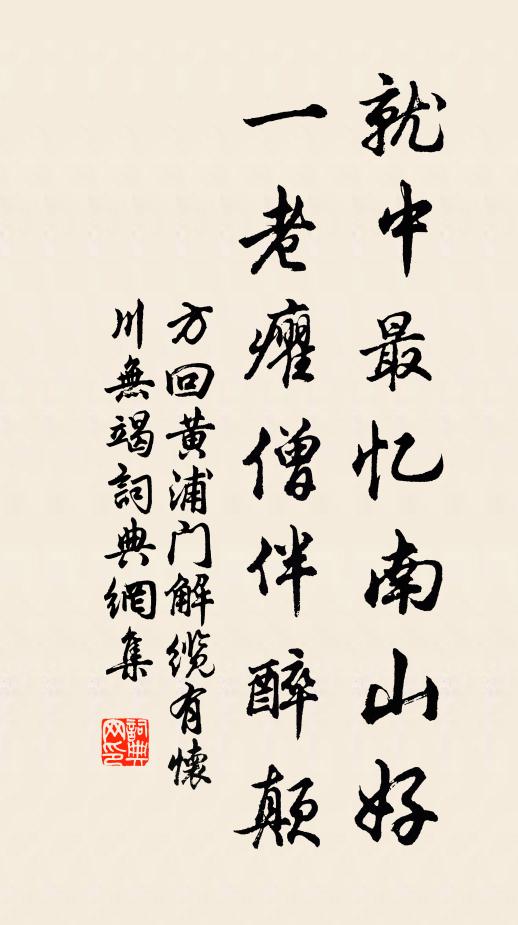 就中最忆南山好
一老癯僧伴醉颠
方回黄浦门解缆有懷
川無竭詞典網集
詞典網印